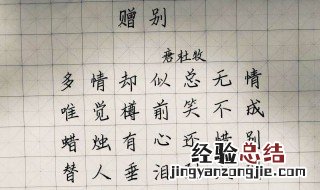 赠别
唐杜牧
多情却似总无情
唯觉樽前笑不成
蜡烛有心还惜别
替人垂泪
经验总结
www.jingyanzongjie.com